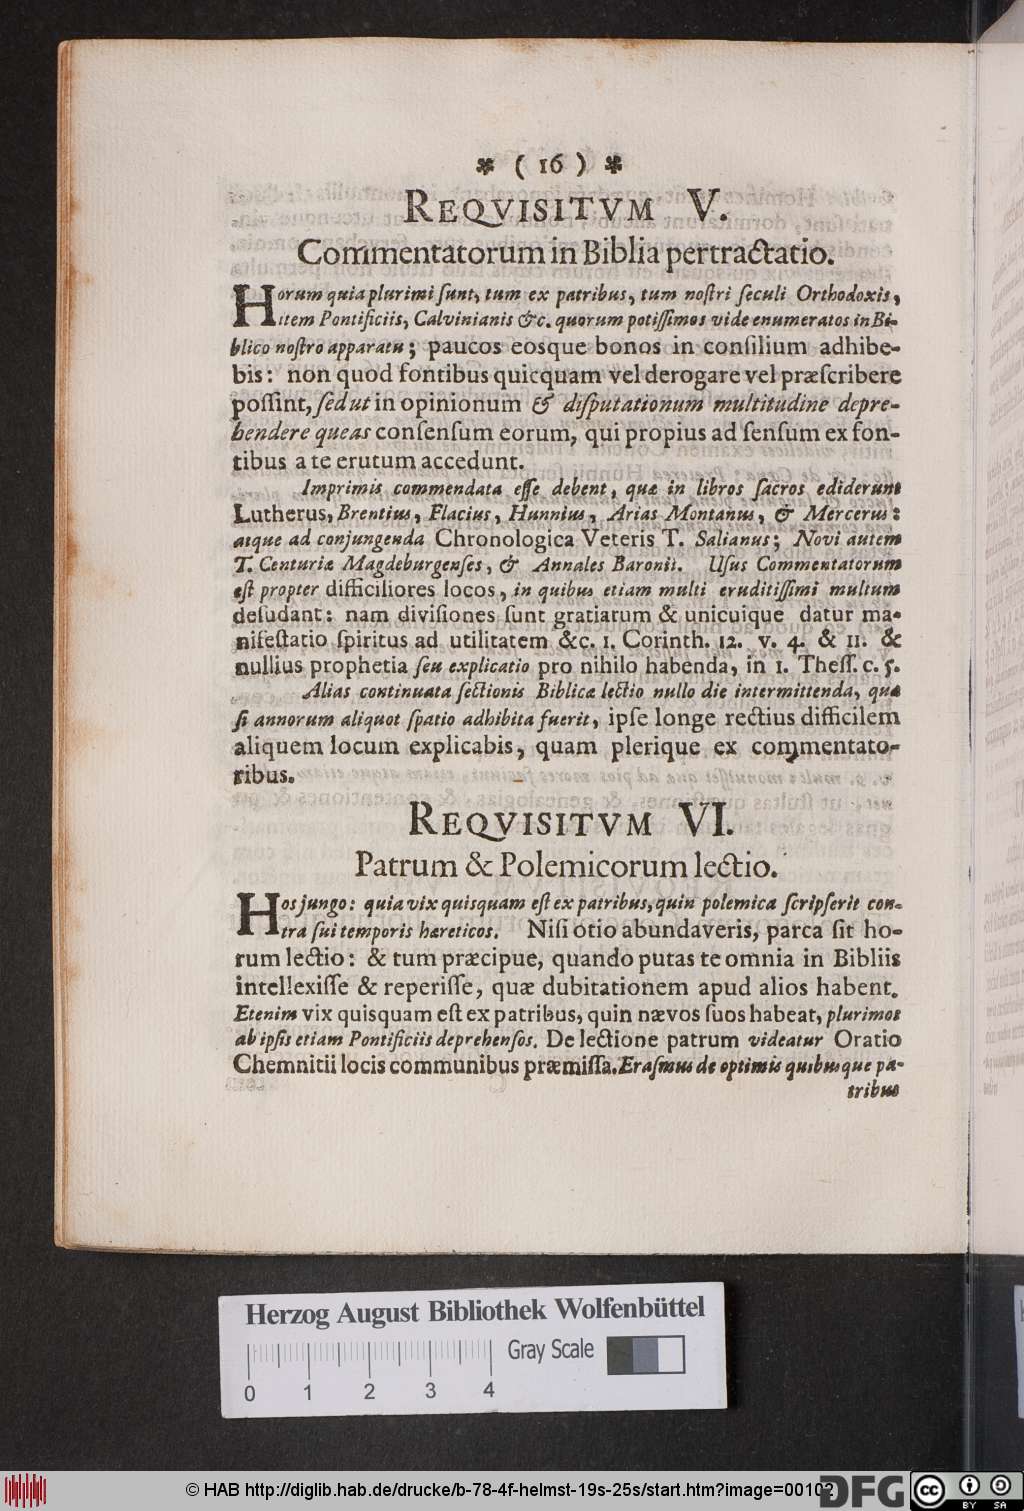 ✻ ( 16 ) ✻
REQVISITVM V.
Commentatorum in Biblia pertractatio.
Horum quia plurimi ſunt, tum ex patribus, tum noſtri ſeculi Orthodoxis,
item Pontificiis, Calvinianis &c. quorum potiſſimos vide enumeratos in Bi-
blico noſtro apparatu; paucos eosque bonos in conſilium adhibe-
bis: non quod fontibus quicquam vel derogare vel præſcribere
poſſint, ſed ut in opinionum & diſputationum multitudine depre-
hendere queas conſenſum eorum, qui propius ad ſenſum ex fon-
tibus a te erutum accedunt.
Imprimis commendata eſſe debent, quæ in libros ſacros ediderunt
Lutherus, Brentius, Flacius, Hunnius, Arias Montanus, & Mercerus:
atque ad conjungenda Chronologica Veteris T. Salianus; Novi autem
T. Centuriæ Magdeburgenſes, & Annales Baronii. Uſus Commentatorum
eſt propter difficiliores locos, in quibus etiam multi eruditiſſimi multum
deſudant: nam diviſiones ſunt gratiarum & unicuique datur ma-
nifeſtatio ſpiritus ad utilitatem &c. 1. Corinth. 12. v. 4. & 11. &
nullius prophetia ſeu explicatio pro nihilo habenda, in 1. Theſſ. c. 5.
Alias continuata ſectionis Biblicæ lectio nullo die intermittenda, quæ
ſi annorum aliquot ſpatio adhibita fuerit, ipſe longe rectius difficilem
aliquem locum explicabis, quam plerique ex commentato-
ribus.
REQVISITVM VI.
Patrum & Polemicorum lectio.
Hos jungo: quia vix quisquam eſt ex patribus, quin polemica ſcripſerit con-
tra ſui temporis hæreticos. Niſi otio abundaveris, parca ſit ho-
rum lectio: & tum præcipue, quando putas te omnia in Bibliis
intellexiſſe & reperiſſe, quæ dubitationem apud alios habent.
Etenim vix quisquam eſt ex patribus, quin nævos ſuos habeat, plurimos
ab ipſis etiam Pontificiis deprehenſos. De lectione patrum videatur Oratio
Chemnitii locis communibus præmiſſa. Eraſmus de optimis quibusque pa-
tribus
Herzog August Bibliothek Wolfenbüttel
Gray Scale
0 1 2 3 4
© HAB http://diglib.hab.de/drucke/b-78-4f-helmst-19s-25s/start.htm?image=00102
DFG
cc BY SA